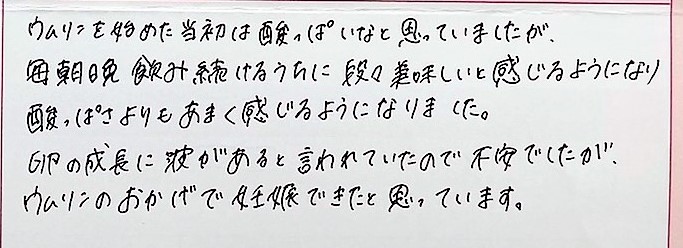 ウムリンを始めた当初は酸っぱいなと思っていましたが、
毎朝晩飲み続けるうちに段々美味しいと感じるようになり
酸っぱさよりもあまく感じるようになりました。
卵の成長に波があると言われていたので不安でしたが、
ウムリンのおかげで妊娠できたと思っています。